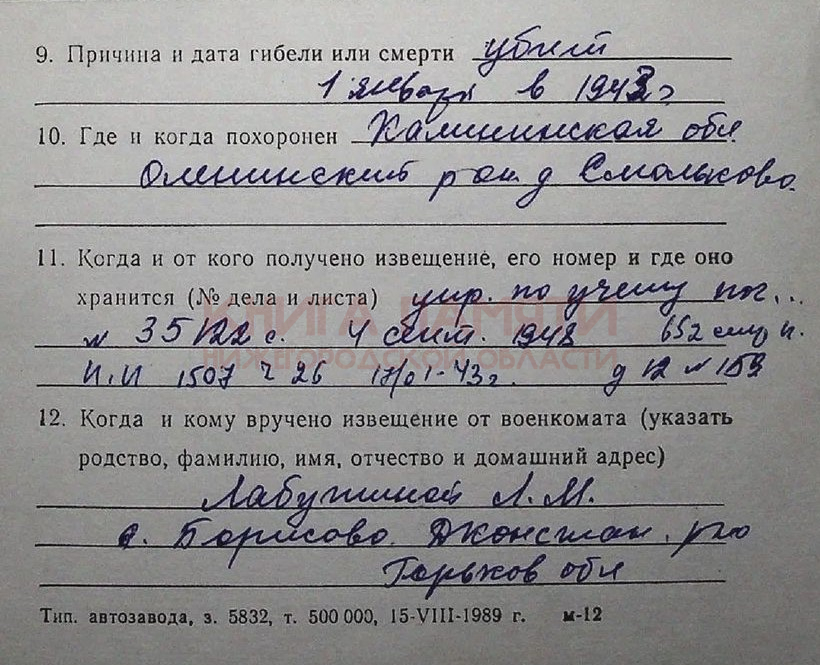 9. Причина и дата гибели или смерти убит
1 января в 1943 г
10. Где и когда похоронен Калининская обл
Оленинский р он д Смольково.
11. Когда и от кого получено извещение, его номер и где оно
хранится (№ дела и листа) упр. по учету пог...
КНИГА ПАМЯТИ
№ 35122 с. 4 сент. 1948 652
НИЖЕГОРОДСКОЙ ОБЛАСТИ
1507 ч 26 д 12 № 159
12. Когда и кому вручено извещение от военкомата (указать
родство, фамилию, имя, отчество и домашний адрес)
Лабутиной Л. М.
с. Борисово
Горьков обл
Тип. автозавода, з. 5832, т. 500 000, 15-VIII-1989 г. м-12